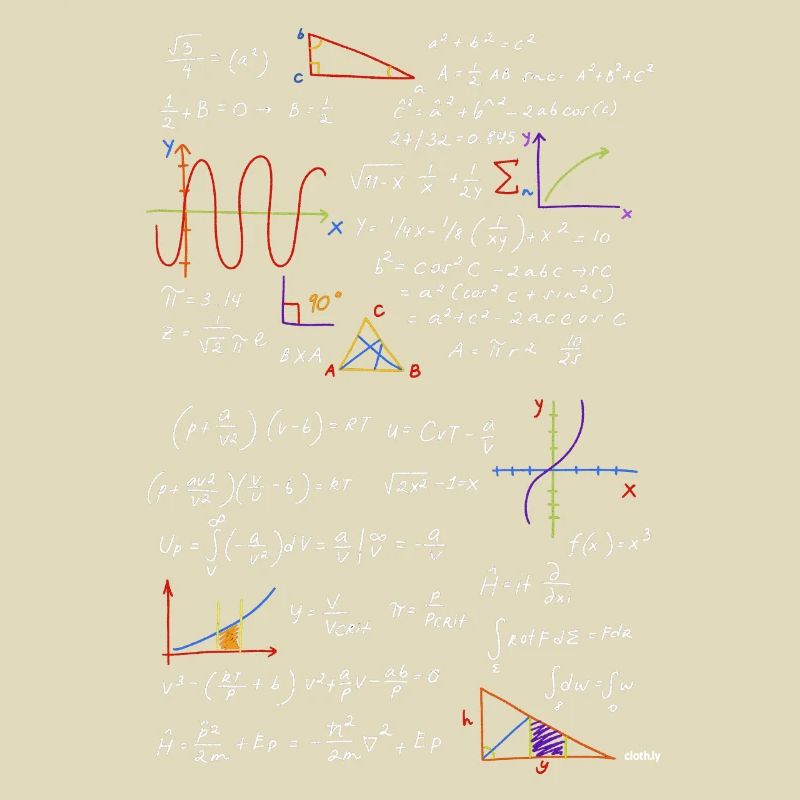 b
√3/4 = (a²)
a² + b² = c²
c
A = 1/2 AB sinc = A²+B²+C²
a
1/2 + B = 0 → B = 1/2
ĉ² = â² + b^² - 2ab cos(c)
27/32 = 0.845
y
Y
√11-x 1/x + 1/2y
Σ
~
x
X
Y = 1/4x - 1/8 (1/xy) + x² = 10
b² = cos² C - 2abc → sc
= a² (cos² c + sin² c)
π = 3.14
90°
C
= a² + c² - 2ac cos C
z = 1/√2π e
B X A
A = π r 2 10/25
A
B
(p + a/v²) (v - b) = RT
u = CvT - a/v
y
(p + av2/v²) (v/v - b) = RT
√2x² - 1 = x
x
Up = ∫ ∞ v (-a/v²) dV = a/v |∞ v = -a/v
f(x) = x³
Ĥ = H ∂/∂xi
y = V/VCRIT
π = P/PCRIT
∫Σ Rot F dΣ = Fdr
v³ - (RT/P + b) v² + a/p v - ab/p = 0
∫ dw = ∫ w
h
Ĥ = p̂²/2m + Ep = - ħ²/2m ∇² + Ep
cloth.ly
y